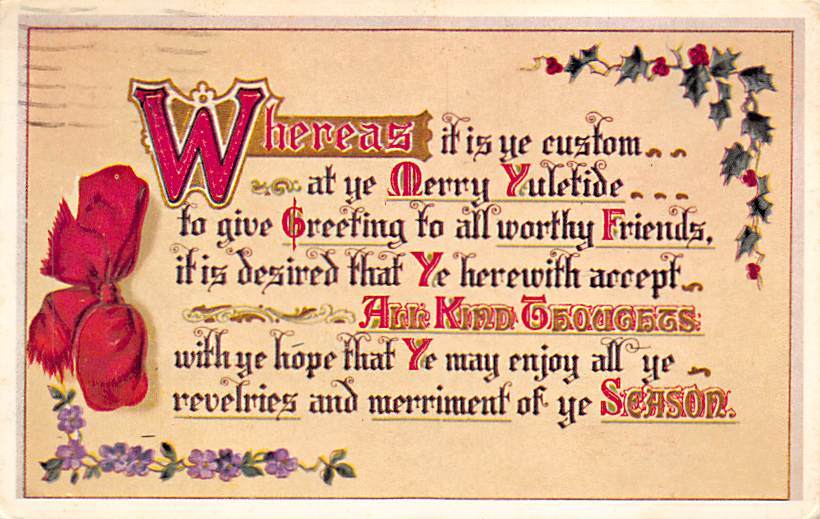 Whereas it is ye custom
at ye Merry Yuletide
to give Greeting to all worthy Friends,
it is desired that Ye herewith accept
ALL KIND THOUGHTS
with ye hope that Ye may enjoy all ye
revelries and merriment of ye SEASON.